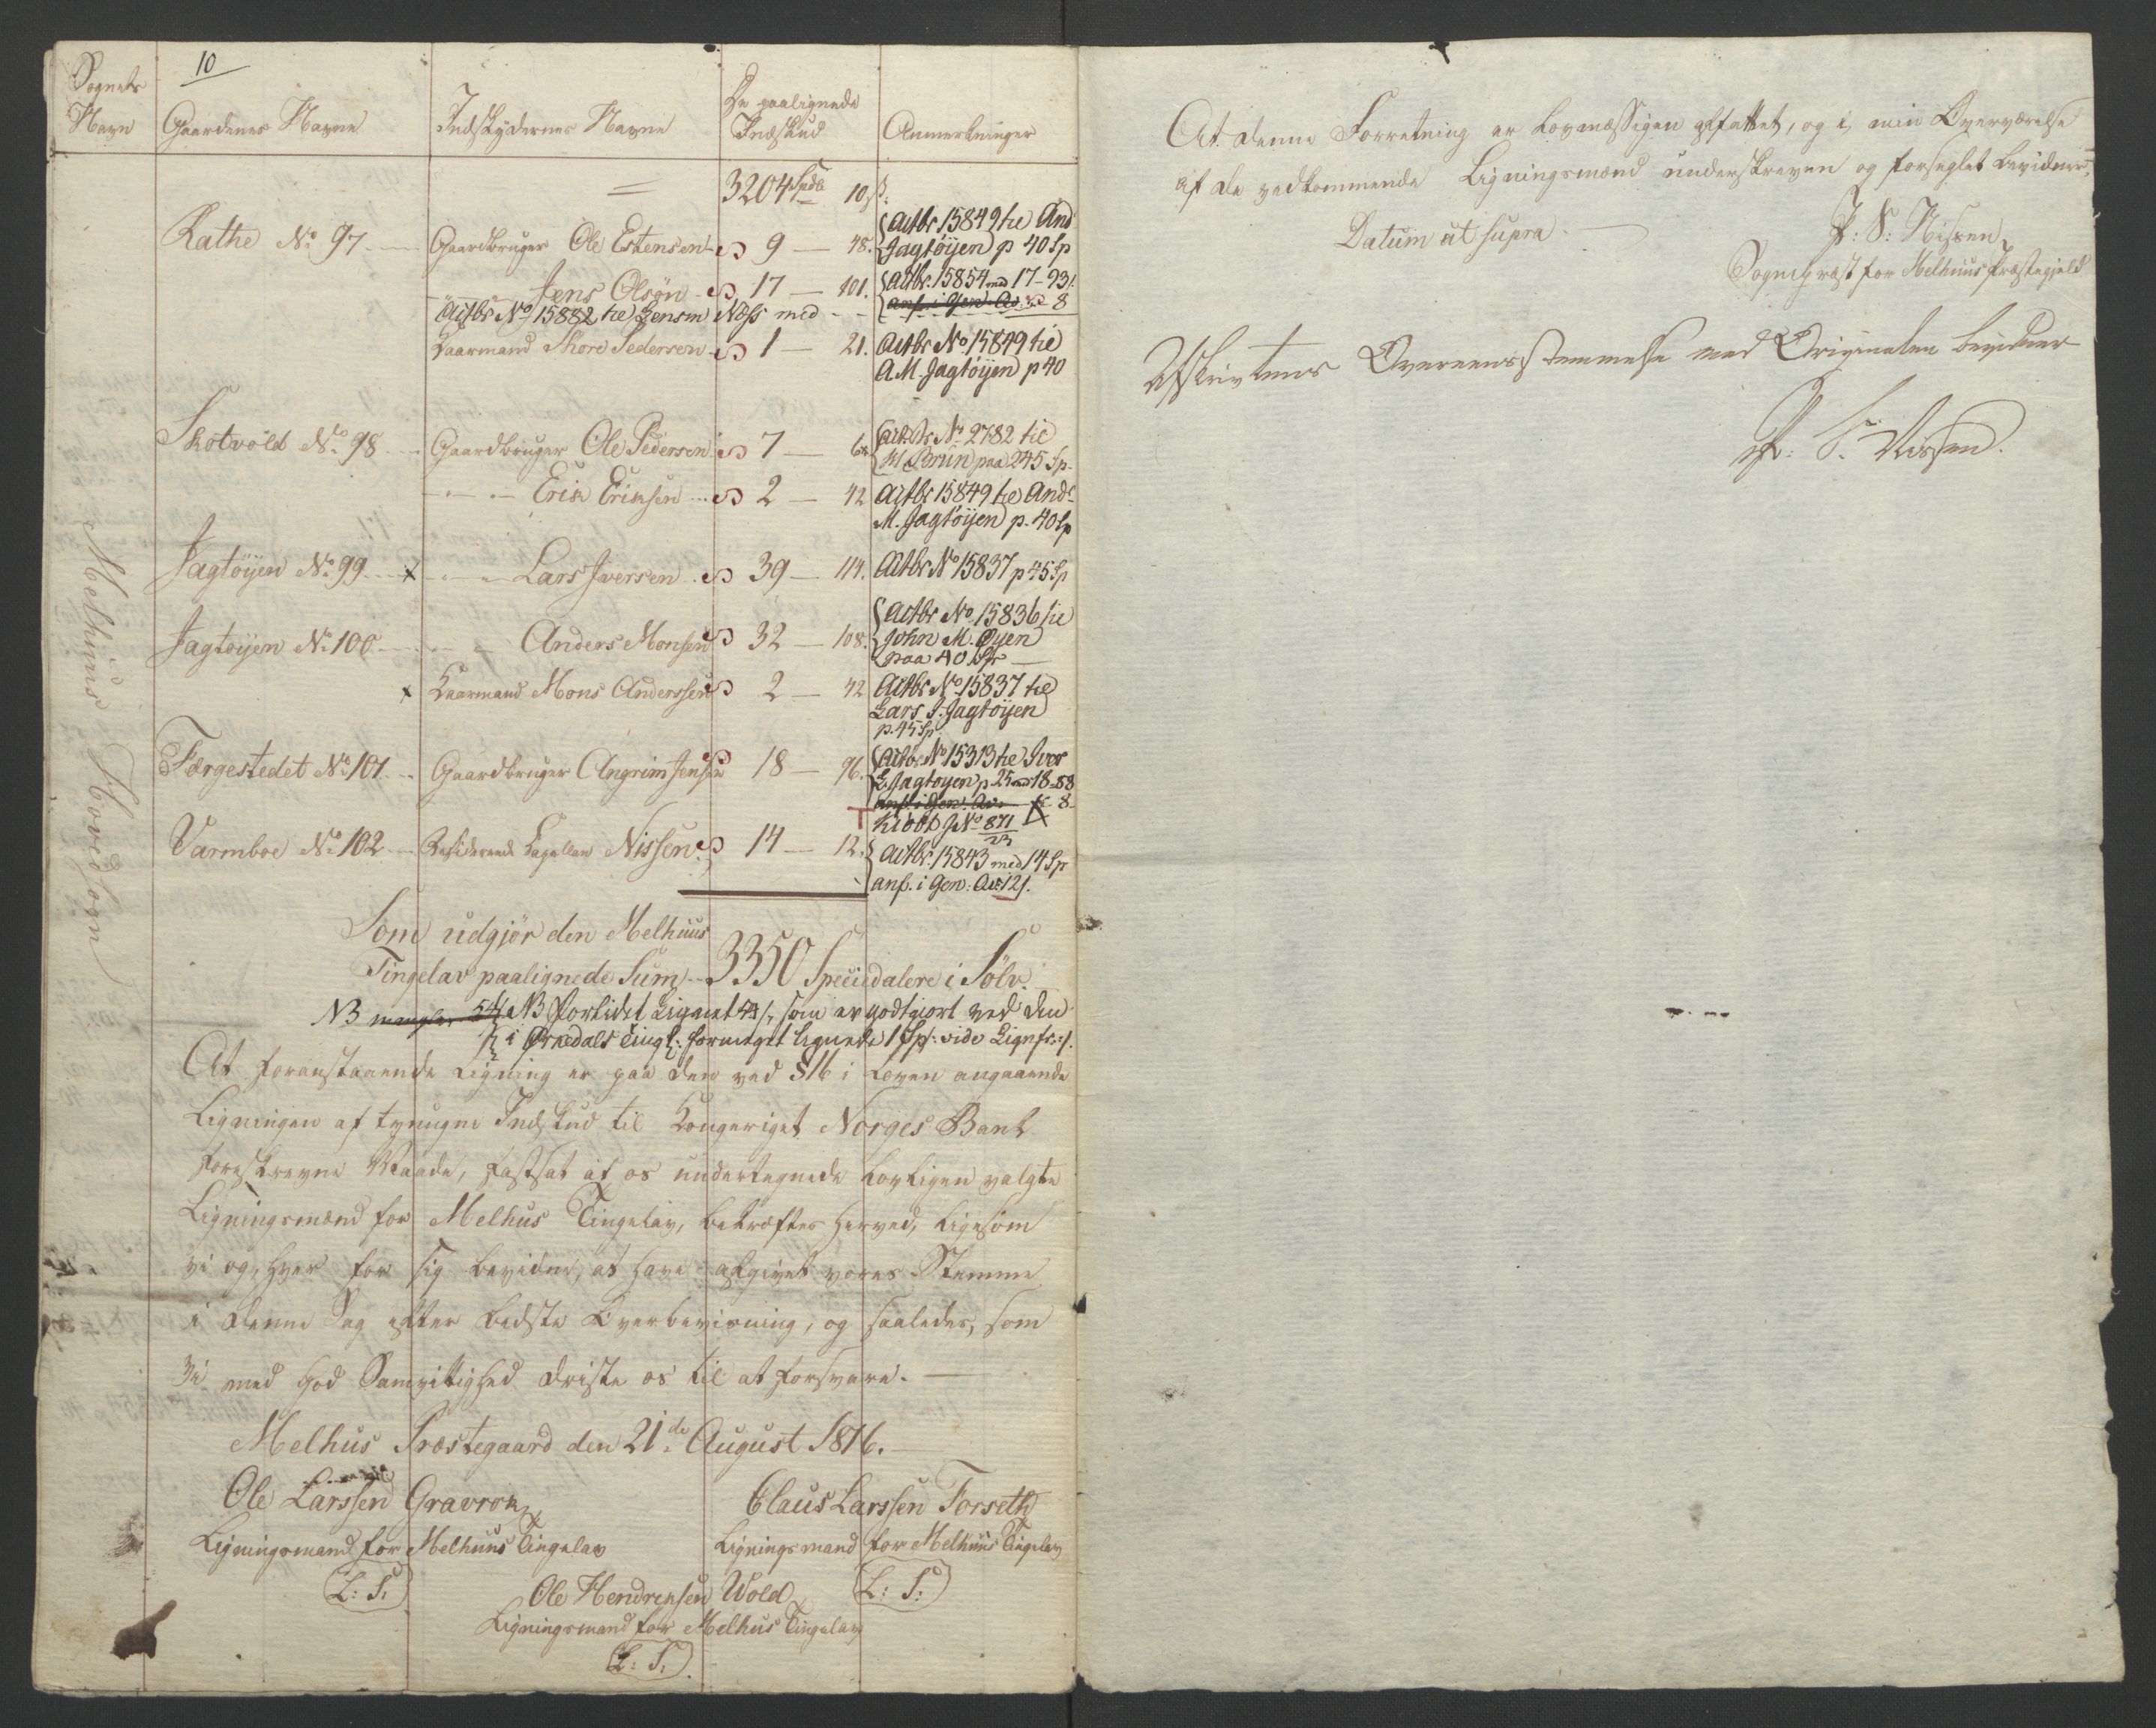 10
Sognets Navn
Gaardenes Navne
Indskydernes Navne
De paalignede Indskud
Anmerkninger
Melhuus Hovedsogn
3204 Spdlr 10 s.
Rathe No 97 Gaardbruger Ole Estensen 9 — 48. Actbr 15849 til And Jagtøyen p 40 Sp
Jens Olsøn 17 — 101. Actbr. 15854 med 17 - 93
Actbr No 15882 til Lensm Næss med anf. i Gen. Av. 8
Kaarmand Thore Pedersen 1 — 21. Actbr No 15849 til
A M. Jagtøyen p 40
Skotvold No 98 Gaardbruger Ole Pedersen 7 — Actbr No 2782 til
M Brun paa 245 Sp.
Erik Eriksen 2 — 42 Actbr 15849 til Ands
M. Jagtøyen p. 40 Sp
Jagtøyen No 99 x Lars Iversen 39 — 114. Actbr No 15837 p 45 Sp
Jagtøyen No 100 Anders Monsen 32 — 108. Actbr No 15836 til
John M. Øyen
paa 40 Sp
x Kaarmand Mons Anderssen 2 — 42 Actbr No 15837 til
Lars J. Jagtøyen
p. 45 Sp
Færgestedet No 101 Gaardbruger Angrim Jensen 18 — 96. Actbr No 15313 til Iver
L. Jagtøyen p. 25 med 18 - 88
anf. i Gen. Av. 8
No 871
Varmboe No 102 Residerende Capellan Nissen 14 — 12. Actbr. 15843 med 14 Sp
anf. i Gen: Av: 12 s.
Som udgjør den Melhuus
Tingelav paalignede Sum 3350 Speciedalere i Sølv.
NB mangler 54 s NB forlidet Lignet 54 s, som er godtgiort ved den
i Ørkedals Tingl: formeget lignede 1 Sp: vide Lignf:
At foranstaaende Ligning er paa den ved § 16 i Loven angaaende
Ligningen af tvungne Indskud til Kongeriget Norges Bank
foreskrevne Maade, fastsat af os undertegnede lovligen valgte
Ligningsmænd for Melhus Tingelav, bekræftes herved, ligesom
vi og, hver for sig bevidne, at have afgivet vores Stemme
i denne Sag efter bedste Overbevisning, og saaledes, som
vi med god Samvittighed driste os til at forsvare.
Melhus Præstegaard den 21de August 1816.
Ole Larssen Gravrok
Ligningsmand for Melhuus Tingelav
L: S:
Claus Larssen Forseth
Ligningsmand for Melhuus Tingelav
L: S:
Ole Hendrichsen Wold
Ligningsmand for Melhus Tingelav
L: S:
At denne Forretning er lovmæssigen affattet, og i min Overværelse
af de vedkommende Ligningsmænd underskreven og forseglet bevidner,
Datum ut supra.
P: S: Nissen,
Sognepræst for Melhuus Præstegjeld
Afskrivtens Overeensstemmelse med Originalen bevidner
P: S: Nissen.